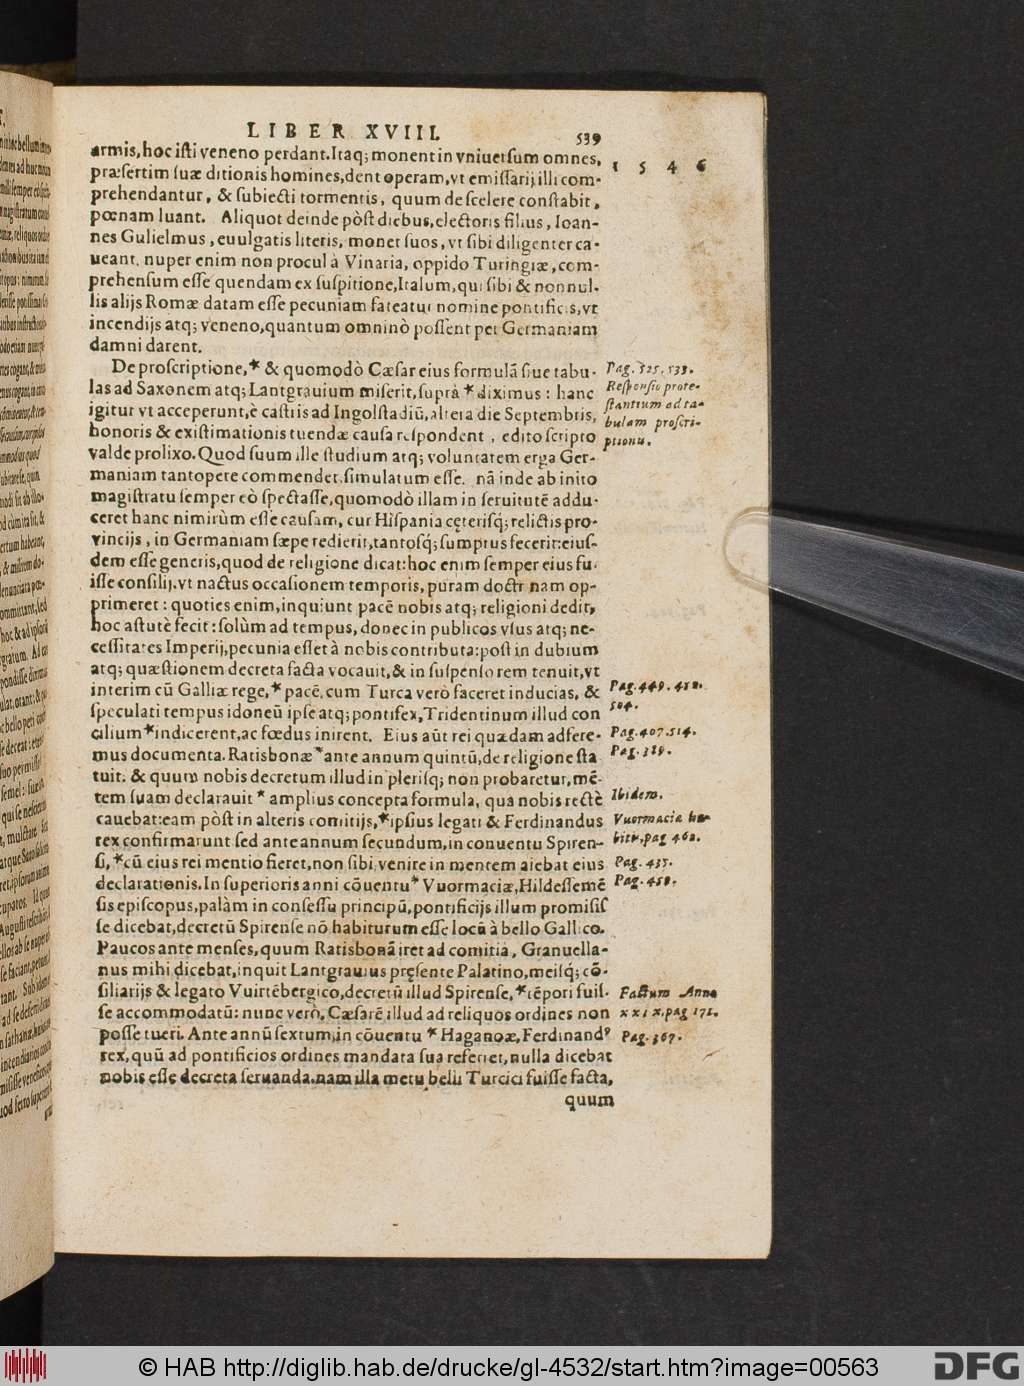 LIBER XVIII.
539
1 5 4 6
armis, hoc isti veneno perdant. Itaq; monent in vniuersum omnes,
præsertim suæ ditionis homines, dent operam, vt emissarij illi com-
prehendantur, & subiecti tormentis, quum de scelere constabit,
pœnam luant. Aliquot deinde pòst diebus, electoris filius, Ioan-
nes Gulielmus, euulgatis literis, monet suos, vt sibi diligenter ca-
ueant. nuper enim non procul à Vinaria, oppido Turingiæ, com-
prehensum esse quendam ex suspitione, Italum, qui sibi & nonnul-
lis alijs Romæ datam esse pecuniam fateatur nomine pontificis, vt
incendijs atq; veneno, quantum omninò possent per Germaniam
damni darent.
De proscriptione, * & quomodò Cæsar eius formulā siue tabu-
las ad Saxonem atq; Lantgrauium miserit, suprà * diximus: hanc
igitur vt acceperunt, è castris ad Ingolstadiū, altera die Septembris,
honoris & existimationis tuendæ causa respondent, edito scripto
valde prolixo. Quod suum ille studium atq; voluntatem erga Ger-
maniam tantopere commendet, simulatum esse. nā inde ab inito
magistratu semper eò spectasse, quomodò illam in seruitutē addu-
ceret hanc nimirùm esse causam, cur Hispania cęterisq́; relictis pro-
vincijs, in Germaniam sæpe redierit, tantosq́; sumptus fecerit: eius-
dem esse generis, quod de religione dicat: hoc enim semper eius fu-
isse consilij, vt nactus occasionem temporis, puram doctrinam op-
primeret: quoties enim, inquiunt pacē nobis atq; religioni dedit,
hoc astutè fecit: solùm ad tempus, donec in publicos vsus atq; ne-
cessitates Imperij, pecunia esset à nobis contributa: post in dubium
atq; quæstionem decreta facta vocauit, & in suspenso rem tenuit, vt
interim cū Galliæ rege, * pacē, cum Turca verò faceret inducias, &
speculati tempus idoneū ipse atq; pontifex, Tridentinum illud con
cilium * indicerent, ac fœdus inirent. Eius aūt rei quædam adfere-
mus documenta. Ratisbonæ * ante annum quintū, de religione sta
tuit. & quum nobis decretum illud in plerisq; non probaretur, mē-
tem suam declarauit * amplius concepta formula, qua nobis rectè
cauebat: eam pòst in alteris comitijs, * ipsius legati & Ferdinandus
rex confirmarunt sed ante annum secundum, in conuentu Spiren-
si, * cū eius rei mentio fieret, non sibi venire in mentem aiebat eius
declarationis. In superioris anni cōuentu * Vuormaciæ, Hildessemē
sis episcopus, palàm in consessu principū, pontificijs illum promisis
se dicebat, decretū Spirense nō habiturum esse locū à bello Gallico.
Paucos ante menses, quum Ratisbonā iret ad comitia, Granuella-
nus mihi dicebat, inquit Lantgrauius pręsente Palatino, meisq́; cō-
siliarijs & legato Vuirtēbergico, decretū illud Spirense, * tēpori fuis-
se accommodatū: nunc verò, Cæsarē illud ad reliquos ordines non
posse tueri. Ante annū sextum, in cōuentu * Haganoæ, Ferdinandꝰ
rex, quū ad pontificios ordines mandata sua referret, nulla dicebat
nobis esse decreta seruanda, nam illa metu belli Turcici fuisse facta,
quum
Pag. 525. 533.
Responsio prote-
stantium ad ta-
bulam proscri-
ptionis.
Pag. 449. 450.
504.
Pag. 407. 514.
Pag. 389.
Ibidem.
Vuormacia ha-
bitis, pag 462.
Pag. 435.
Pag. 458.
Factum Anno
xxix, pag 172.
Pag. 367.
© HAB http://diglib.hab.de/drucke/gl-4532/start.htm?image=00563
DFG